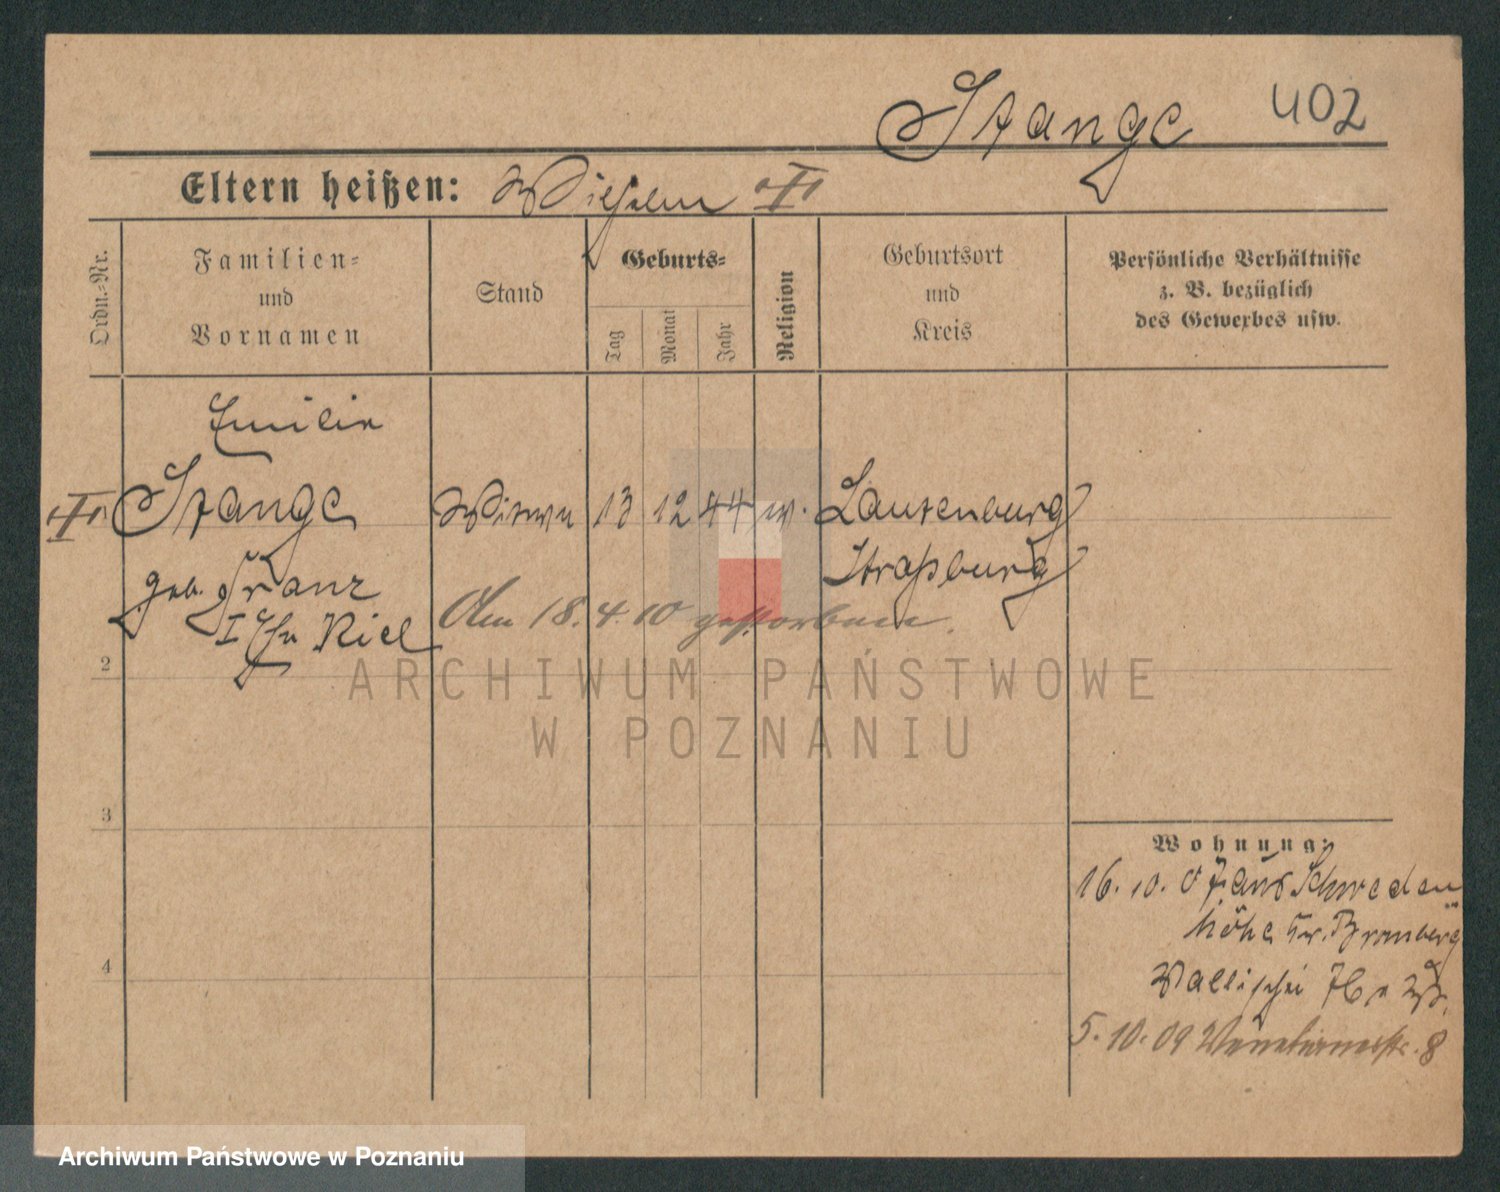 Stange 402
Eltern heißen: Wilhelm
Ordn.-Nr.
Familien-
und
Vornamen
Stand
Geburts-
Tag
Monat
Jahr
Religion
Geburtsort
und
Kreis
Persönliche Verhältnisse
z. B. bezüglich
des Gewerbes usw.
Emilie
Stange Witwe 13 12 44 Lautenburg
geb. Franz Straßburg
I Ehe Kiel Am 18. 4. 10 gestorben.
2
3
4
Wohnung:
16. 10. 07 aus Schweden
höhe Kr. Bromberg
Wallischei
5. 10. 09 Venetianerstr. 8
ARCHIWUM PAŃSTWOWE
W POZNANIU
Archiwum Państwowe w Poznaniu